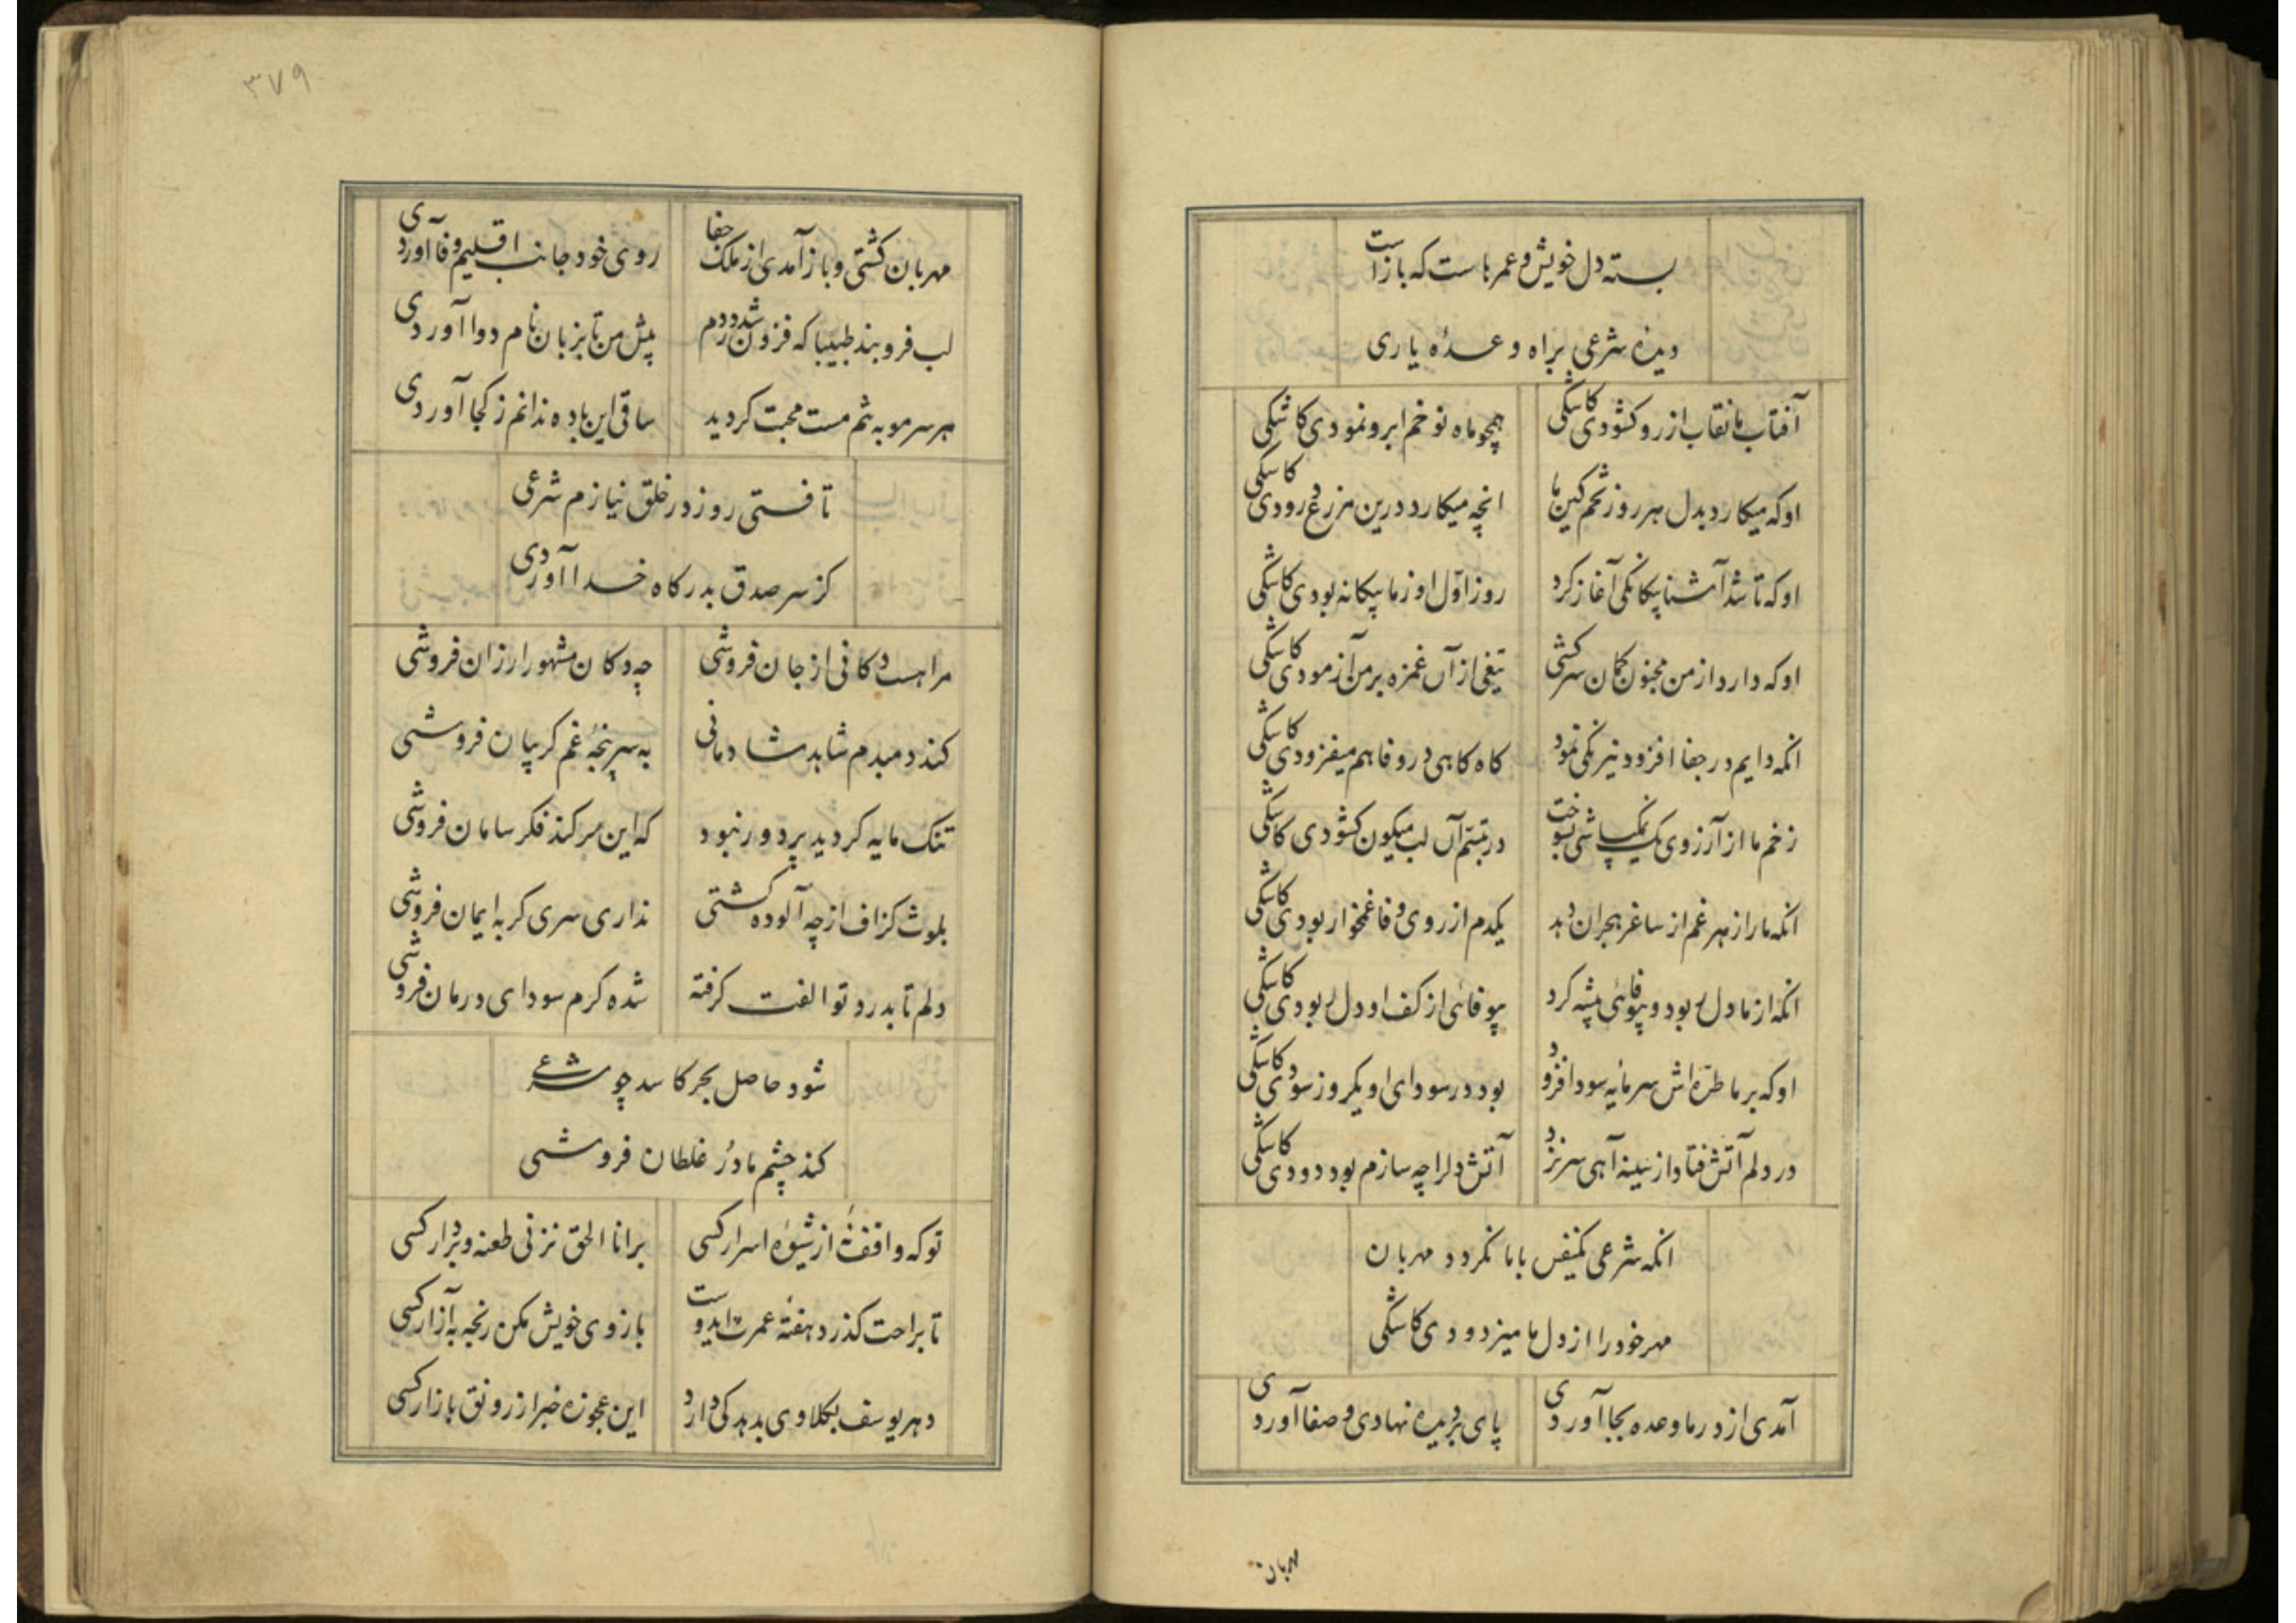 بسته دل خویش و عمرها ست که باز است
دیده شرعی براه وعدهٔ یاری
آفتاب ما نقاب از رو کشودی کاشکی
همچو ماه نو خم ابرو نمودی کاشکی
او که میکارد بدل هر روز تخم کین ما
انچه میکارد درین مزرع درودی کاشکی
او که تا شد آشنا بیکانکی آغاز کرد
روز اول او ز ما بیکانه بودی کاشکی
او که دارد از من مجنون کمان سرکشی
تیغی از آن غمزه بر من آزمودی کاشکی
انکه دایم در جفا افزود نیرنکی نمود
کاه کاهی در وفا هم میفزودی کاشکی
زخم ما از آرزوی یک نمک پاشی بسوخت
در تبسم آن لب میکون کشودی کاشکی
انکه ما را زهر غم از ساغر هجران دهد
یکدم از روی وفا غمخوار بودی کاشکی
انکه از ما دل ربود و بیوفائی پیشه کرد
بیوفائی از کف او دل ربودی کاشکی
او که بر ما طره اش سرمایه سودا فزود
بود در سودای او یکروز سودی کاشکی
در دلم آتش فتاد از سینه آهی سر نزد
آتش دلرا چه سازم بود دودی کاشکی
انکه شرعی یکنفس با ما نکردد مهربان
مهر خود را از دل ما میزدودی کاشکی
آمدی از در ما وعده بجا آوردی
پای بر دیده نهادی و صفا آوردی
مهربان
۳۷۹
مهربان کشتی و باز آمدی از ملک جفا
روی خود جانب اقلیم وفا آوردی
لب فرو بند طبیبا که فزون شد دردم
پیش من تا بزبان نام دوا آوردی
هر سر مو به تنم مست محبت کردید
ساقی این باده ندانم ز کجا آوردی
تافتی روز در خلق نیازم شرعی
کز سر صدق بدرکاه خدا آوردی
مرا هست دکانی از جان فروشی
چه دکان مشهور ارزان فروشی
کند دمبدم شاهد شادمانی
به سرپنجهٔ غم کریبان فروشی
تنک مایه کردید پر دور نبود
که این سر کند فکر سامان فروشی
بلوث کزاف از چه آلوده کشتی
نداری سری کر به ایمان فروشی
دلم تا بدرد تو الفت کرفته
شده کرم سودای درمان فروشی
شود حاصل بحر کاسد چو شرعی
کند چشم ما در غلطان فروشی
تو که واقف نهٔ از شیوهٔ اسرار کسی
بر انا الحق نزنی طعنه و بر دار کسی
تا براحت کذرد هفتهٔ عمرت ایدوست
بازوی خویش مکن رنجه به آزار کسی
دهر یوسف بکلاوی بدهد کی دارد
این عجوزه خبر از رونق بازار کسی